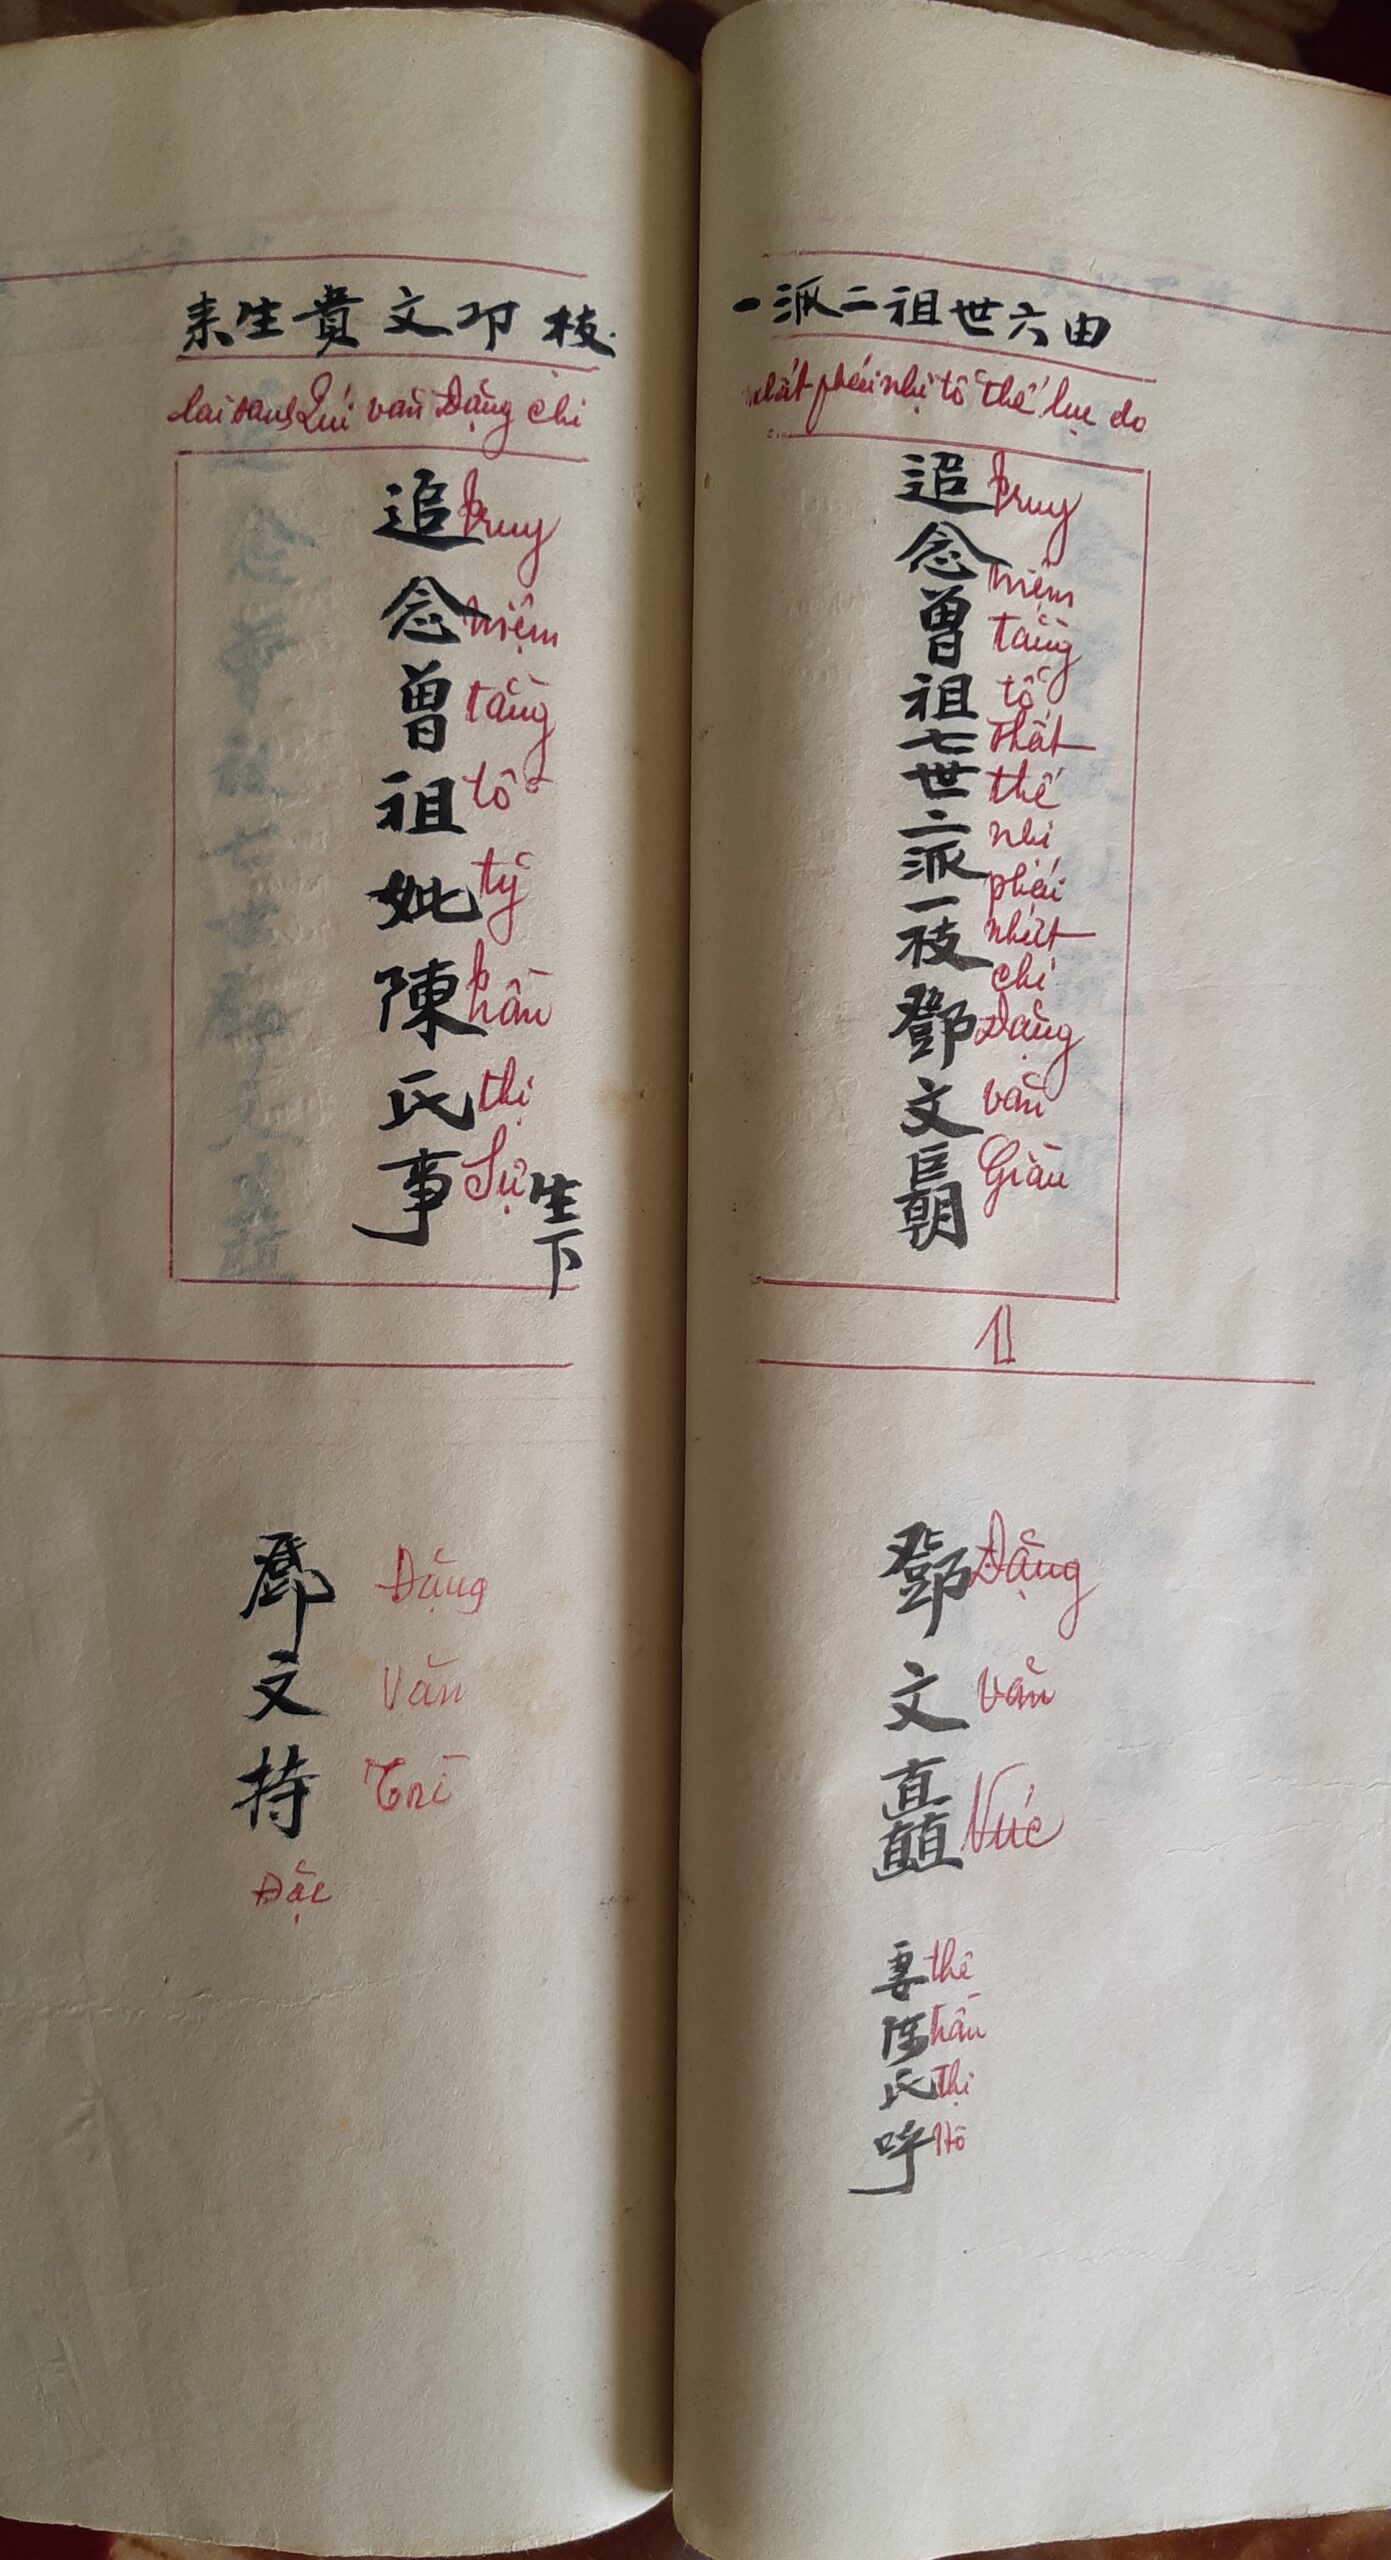 由六世祖二派一
do lục thế tổ nhị phái nhất
追念曾祖七世二派一枝鄧文𢀨
truy niệm tằng tổ thất thế nhị phái nhất chi Đặng văn Giàu
11
鄧文矗
Đặng văn Vúc
妻陈氏呼
thê trần thị Hô
枝邓文貴生来
chi Đặng văn Quí sanh lai
生下
追念曾祖妣陳氏事
truy niệm tằng tổ tỷ trần thị Sự
鄧文持
Đặng Văn Trì
Đặc